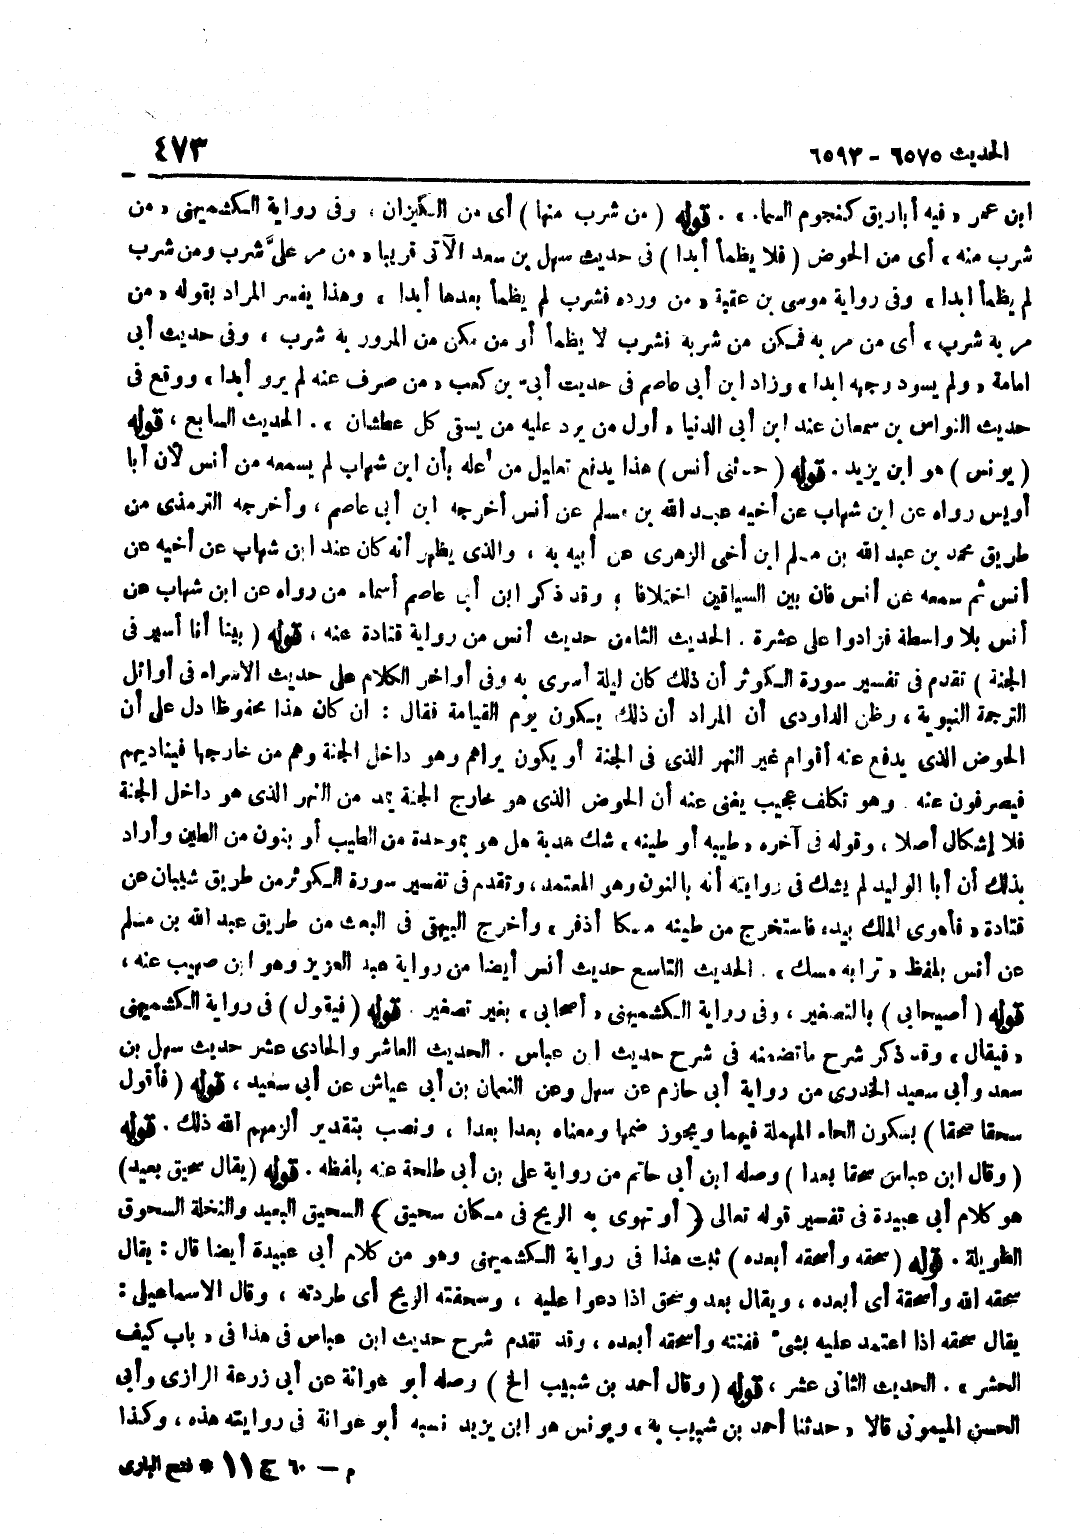 الحديث ٦٥٧٥ - ٦٥٩٣
٤٧٣
ابن عمر « فيه أباريق كنجوم السماء » . قوله ( من شرب منها ) أى من الكيزان ، وفى رواية الكشميهنى « من
شرب منه » أى من الحوض ( فلا يظمأ أبدا ) فى حديث سهل بن سعد الآتى قريبا « من مر علىَّ شرب ومن شرب
لم يظمأ ابدا » وفى رواية موسى بن عقبة « من ورده فشرب لم يظمأ بعدها أبدا » وهذا يفسر المراد بقوله « من
مر به شرب » أى من مر به فمكن من شربه فشرب لا يظمأ أو من مكن من المرور به شرب ، وفى حديث أبى
امامة « ولم يسود وجهه ابدا » وزاد ابن أبى عاصم فى حديث أبىّ بن كعب « من صرف عنه لم يرو أبدا » ووقع فى
حديث النواس بن سمعان عند ابن أبى الدنيا « أول من يرد عليه من يسقى كل عطشان » . الحديث السابع ، قوله
( يونس ) هو ابن يزيد . قوله ( حدثنى أنس ) هذا يدفع تعليل من أعله بأن ابن شهاب لم يسمعه من أنس لأن أبا
أويس رواه عن ابن شهاب عن أخيه عبد الله بن مسلم عن أنس أخرجه ابن أبى عاصم ، وأخرجه الترمذى من
طريق محمد بن عبد الله بن مسلم ابن أخى الزهرى عن أبيه به ، والذى يظهر أنه كان عند ابن شهاب عن أخيه عن
أنس ثم سمعه عن أنس فان بين السياقين اختلافا ؛ وقد ذكر ابن أبى عاصم أسماء من رواه عن ابن شهاب عن
أنس بلا واسطة فزادوا على عشرة . الحديث الثامن حديث أنس من رواية قتادة عنه ، قوله ( بينا أنا أسير فى
الجنة ) تقدم فى تفسير سورة الكوثر أن ذلك كان ليلة أسرى به وفى أواخر الكلام على حديث الاسراء فى أوائل
الترجمة النبوية ، وظن الداودى أن المراد أن ذلك يكون يوم القيامة فقال : ان كان هذا محفوظا دل على أن
الحوض الذى يدفع عنه أقوام غير النهر الذى فى الجنة أو يكون يراهم وهو داخل الجنة وهم من خارجها فيناديهم
فيصرفون عنه . وهو تكلف عجيب يغنى عنه أن الحوض الذى هو خارج الجنة يمد من النهر الذى هو داخل الجنة
فلا إشكال أصلا ، وقوله فى آخره « طيبه أو طينه » شك هدبة هل هو بموحدة من الطيب أو بنون من الطين وأراد
بذلك أن أبا الوليد لم يشك فى روايته أنه بالنون وهو المعتمد ، وتقدم فى تفسير سورة الكوثر من طريق شيبان عن
قتادة « فأهوى الملك بيده فاستخرج من طينه مسكا أذفر » وأخرج البيهقى فى البعث من طريق عبد الله بن مسلم
عن أنس بلفظ « ترابه مسك » . الحديث التاسع حديث أنس أيضا من رواية عبد العزيز وهو ابن صهيب عنه ،
قوله ( أصيحابى ) بالتصغير ، وفى رواية الكشميهنى « أصحابى » بغير تصغير . قوله ( فيقول ) فى رواية الكشميهنى
« فيقال » وقد ذكر شرح ما تضمنه فى شرح حديث ابن عباس . الحديث العاشر والحادى عشر حديث سهل بن
سعد وأبى سعيد الخدرى من رواية أبى حازم عن سهل وعن النعمان بن أبى عياش عن أبى سعيد ، قوله ( فأقول
سحقا سحقا ) بسكون الحاء المهملة فيهما ويجوز ضمها ومعناه بعدا بعدا ، ونصب بتقدير ألزمهم الله ذلك . قوله
( وقال ابن عباس سحقا بعدا ) وصله ابن أبى حاتم من رواية على بن أبى طلحة عنه بلفظه . قوله ( يقال سحيق بعيد )
هو كلام أبى عبيدة فى تفسير قوله تعالى ﴿ أو تهوى به الريح فى مكان سحيق ﴾ السحيق البعيد والنخلة السحوق
الطويلة . قوله ( سحقه وأسحقه أبعده ) ثبت هذا فى رواية الكشميهنى وهو من كلام أبى عبيدة أيضا قال : يقال
سحقه الله وأسحقه أى أبعده ، ويقال بعد وسحق اذا دعوا عليه ، وسحقته الريح أى طردته ، وقال الاسماعيلى :
يقال سحقه اذا اعتمد عليه بشىء ففتته وأسحقه أبعده ، وقد تقدم شرح حديث ابن عباس فى هذا فى « باب كيف
الحشر » . الحديث الثانى عشر ، قوله ( وقال أحمد بن شبيب الخ ) وصله أبو عوانة عن أبى زرعة الرازى وأبى
الحسن الميمونى قالا « حدثنا أحمد بن شبيب به » ويونس هو ابن يزيد نسبه أبو عوانة فى روايته هذه ، وكذا
م — ٦٠ ج ١١ * فتح البارى